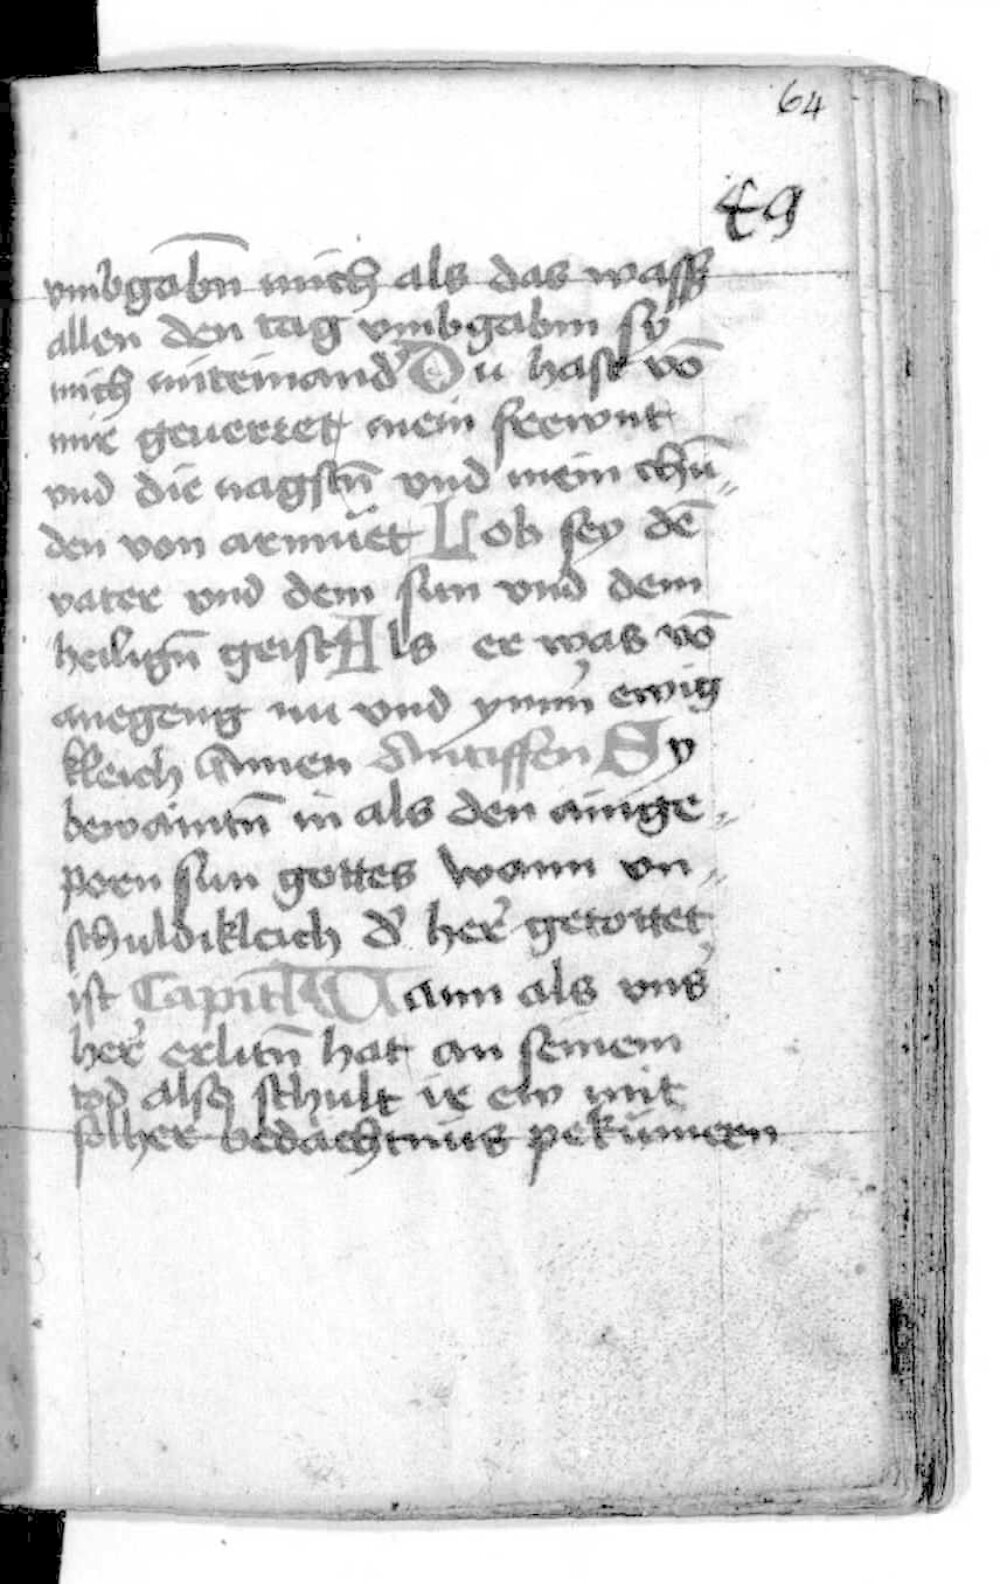 64
49
vmbgabn̄ mich als das wass
allen den tag vmbgabm sy
mich miteinand' Du hast vō
mir geuerret mein frewnt
vnd die nagstn̄ vnd mein chūn„
den von armüet Lob sey dē
vater vnd dem sun vnd dem
heilign̄ geist Als er was vō
anegeng nu vnd ymm' ewig
kleich Amen Antiffen Sy
bewaintn̄ in als den ainge„
porn sun gottes wann vn„
schuldikleich d' her' getottet
ist Capitl Wann als vns'
her' erlitn̄ hat an seinem
tod also schult ir ew mit
solher bedächtnüs pekümern